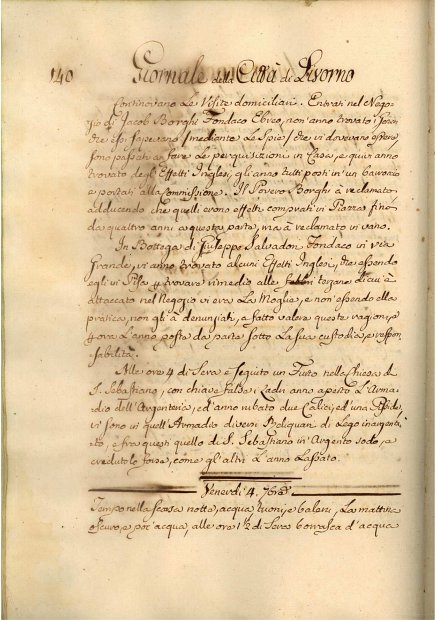 140 Giornale della Città di Livorno
Continovano Le Visite domiciliari. Entrati nel Nego-
zio di Jacob Borghi Fondaco Ebreo, non anno trovato
che essi sapevano (mediante Le Spie) che vi dovevano essere,
sono passati a fare Le perquisizione in Casa, e quivi anno
trovato degl' Effetti Inglesi, gli anno tutti posti in un baroccio
e portati alla Commissione. Il Povero Borghi à reclamato
adducendo che quelli erono effetti comprati in Piazza fino
da quattro anni a questa parte, ma à reclamato in vano.
In Bottega di Giuseppe Salvadori Fondaco in via
Grande, vi anno trovato alcuni Effetti Inglesi, che essendo
egli in Pisa p trovare rimedio alle terzane di cui è
attaccato nel Negozio vi era La Moglie, e non essendo ella
pratica, non gli à denunziati, a fatto valere queste ragioni, e
p ora L'anno posta da parte sotto La sua custodia, e respon
sabilità.
Alle ore 4 di Sera è seguito un Furto nella Chiesa di
S. Sebastiano, con chiave falsa i Ladri anno aperto L'Arma-
dio dell'Argenteria, ed anno rubato due Calici, ed una Pisside,
vi sono in quell'Armadio diversi Reliquari di Legno inargenta-
to, e fra questi quello di S. Sebastiano in Argento sodo, a
creduto lo forse, come gl'altri L'anno Lassato.
Venerdi 4. 7bra
Tempo nella scorsa notte, acqua tuoni, e baleni, La mattina
oscuro, e poc'acqua, alle ore 1½ di Sera borrasca d'acqua